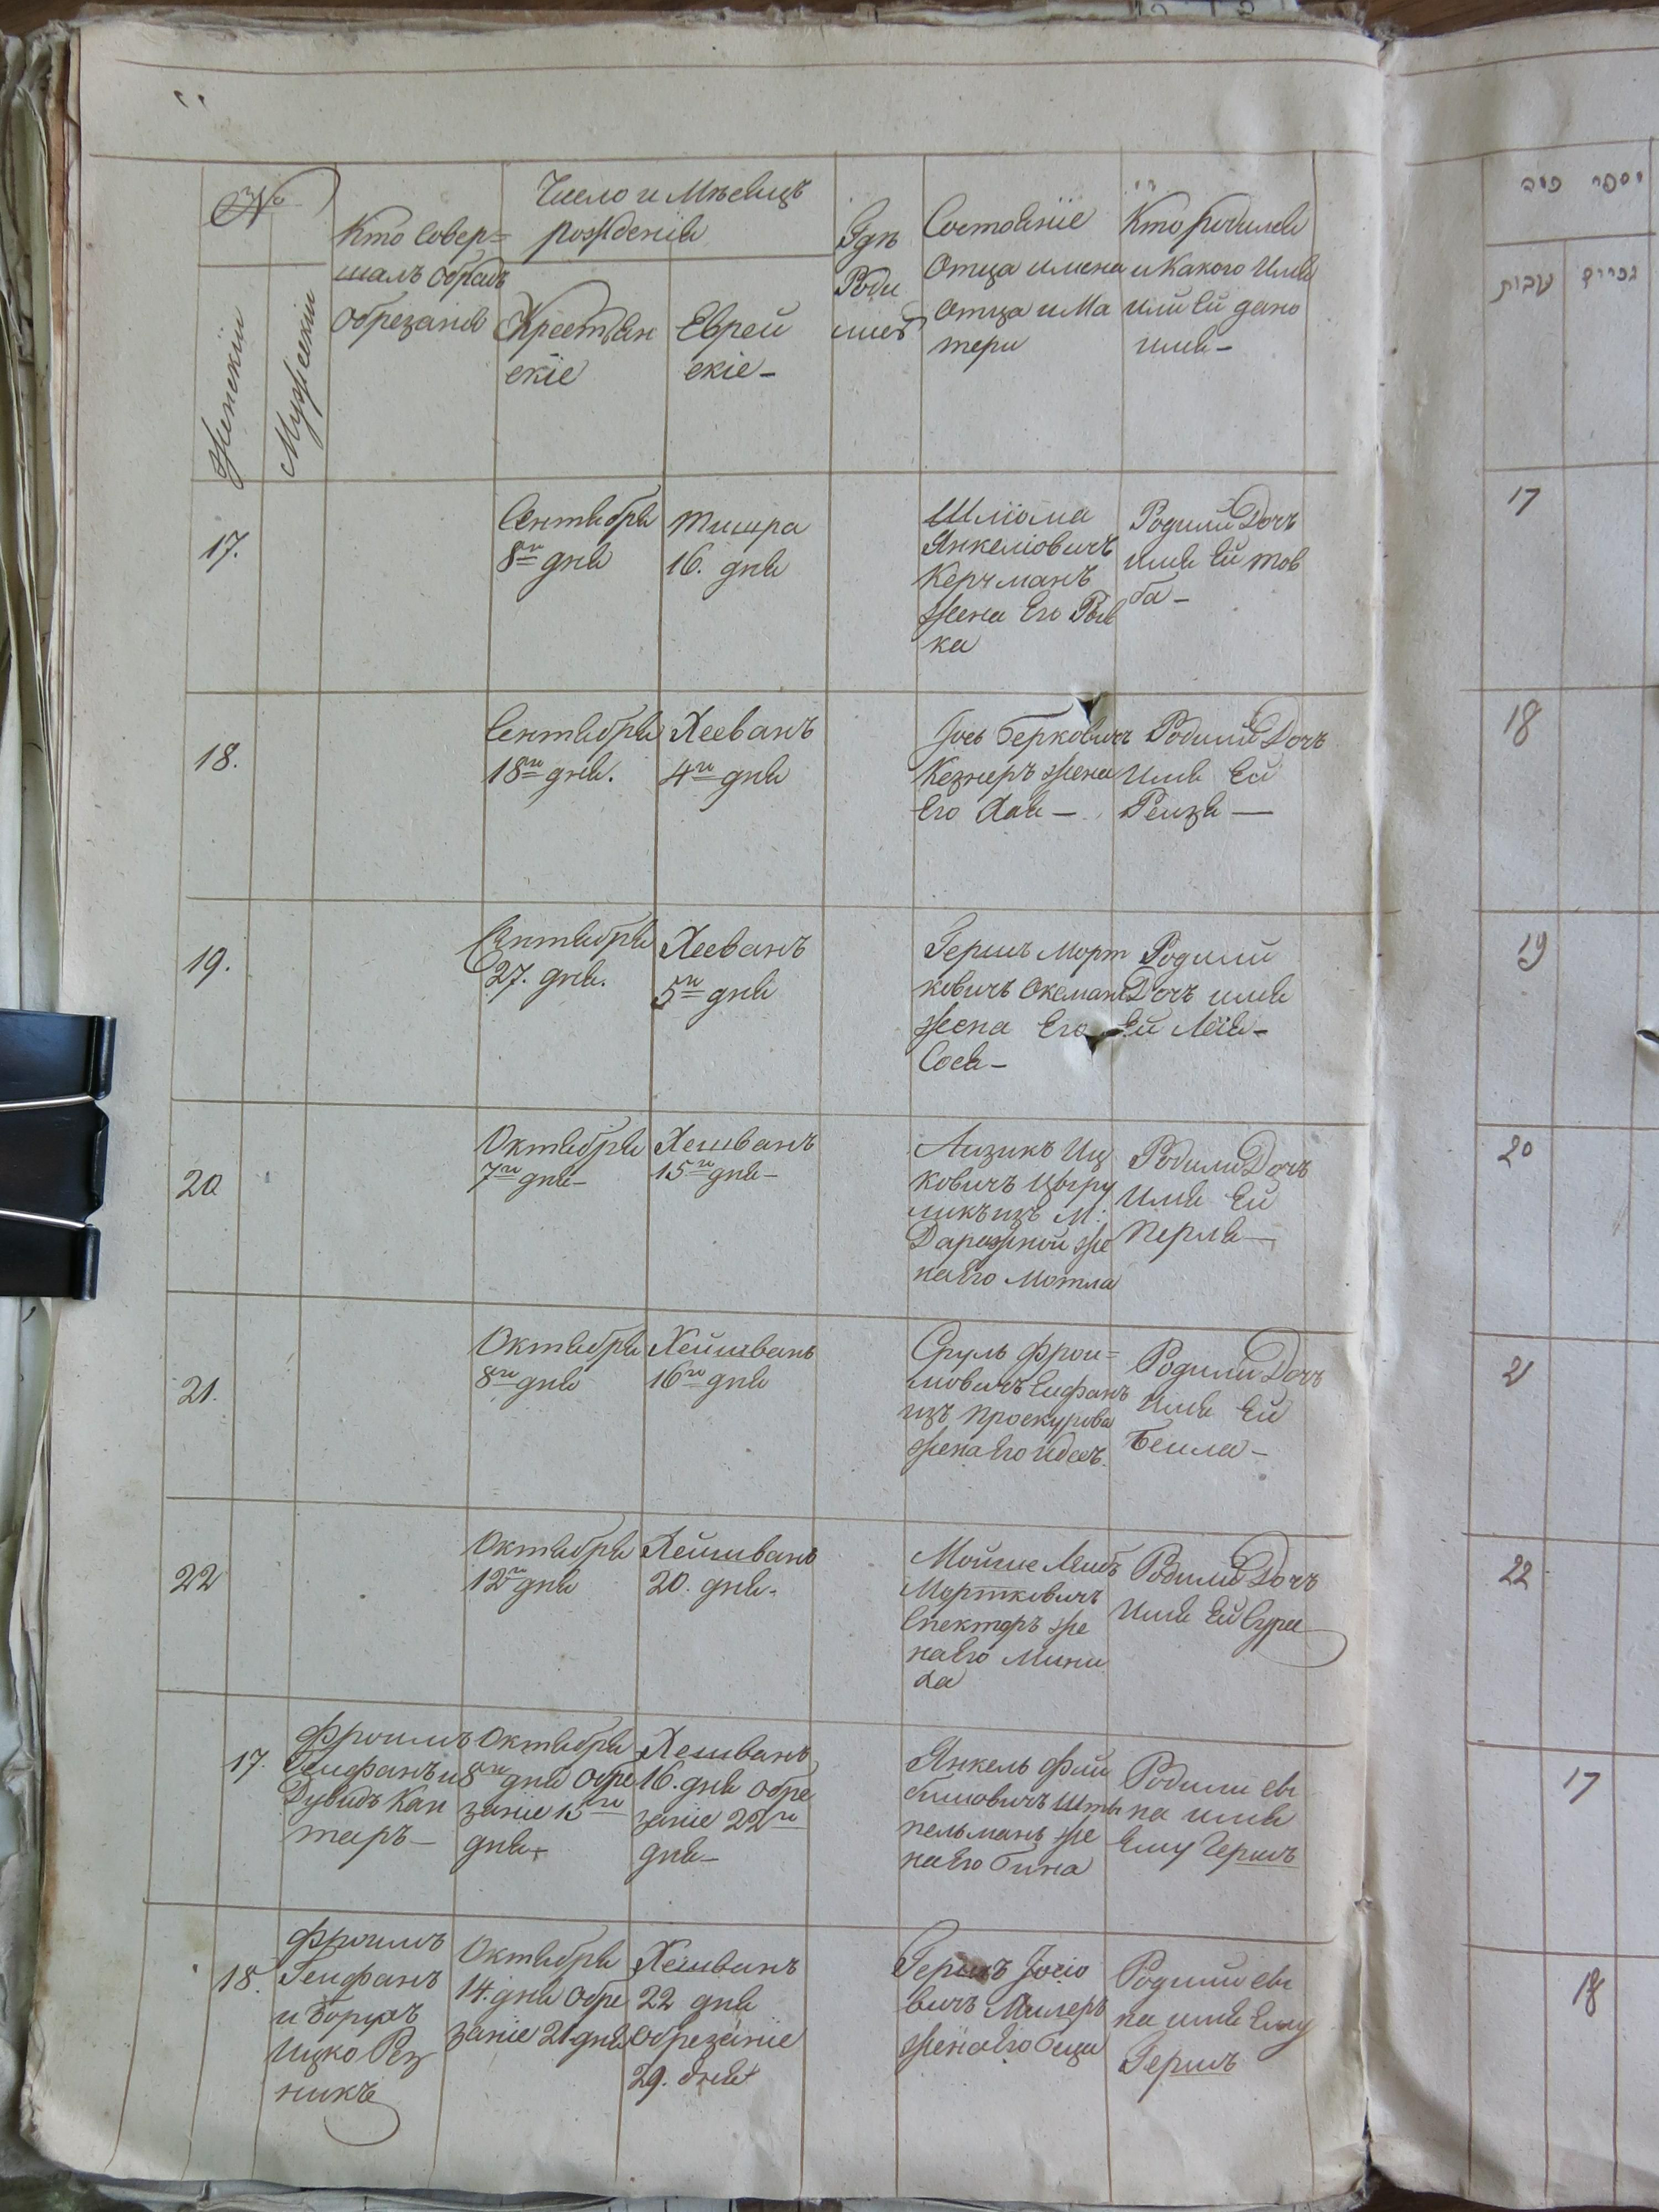 №
Женскiи
Мужескiи
Кто Совер=
шалъ обрядъ
обрезанія
Число и Мѣсяцъ
рожденія
Хрестіян
скіе
Еврей
скіе –
Гдѣ
Роди
лис
Состояніе
Отца имена
отца и Ма
тери
Кто родился
и Какого Имя
или Ей дано
имя –
17.
Сентября
8го дня
тишра
16. дня
Шліома
Янкеліовичъ
Керчманъ
жена Его Рыв
ка
Родили Дочъ
имя Ей тов
ба –
18.
Сентября
18го дня.
Хесванъ
4го дня
Іось Берковичъ
Кезнеръ жена
Его Хая –
Родили Дочъ
Имя Ей
Рейзя –
19.
Сентября
27. дня.
Хесванъ
5го дня
Гершъ Морт
ковичъ Оксманъ
жена Его
Сося –
Родили
Дочъ имя
Ей Лея –
20
Октября
7го дня –
Хешванъ
15го дня –
Аизикъ Иц
ковичъ Цыру
ликъ изъ М:
Даражной же
на Его Мотля
Родили Дочъ
Имя Ей
Перля –
21.
Октября
8го дня
Хейшванъ
16го дня
Сруль Фрои=
мовичъ
изъ Проскурова
жена Его
Родили Дочъ
Имя Ей
Бейла –
22
Октября
12го дня
Хейшванъ
20. дня.
Мойше Лейб
Мортковичъ
Спекторъ же
на Его Мини
ха
Родили Дочъ
Имя Ей Сура
17.
Фроимъ
Гелфанъ и
Дувидъ Кан
таръ –
Октября
8го дня обре
заніе 15го
дня
Хешванъ
16. дня обре
заніе 22го
дня –
Янкель Фай
бишовичъ Шты
пельманъ же
на Его Бина
Родили сы
на имя
Ему Гершъ
18.
Фроимъ
Гелфанъ
и Борухъ
Ицко Рез
никъ
Октября
14. дня обре
заніе 21 дня
Хешванъ
22 дня
обрезаніе
29. дня
Гершъ Іосіо
вичъ Милеръ
жена Его Беця
Родили сы
на имя Ему
Гершъ
מספר לידה
נקבות
זכרים
17
18
19
20
21
22
17
18